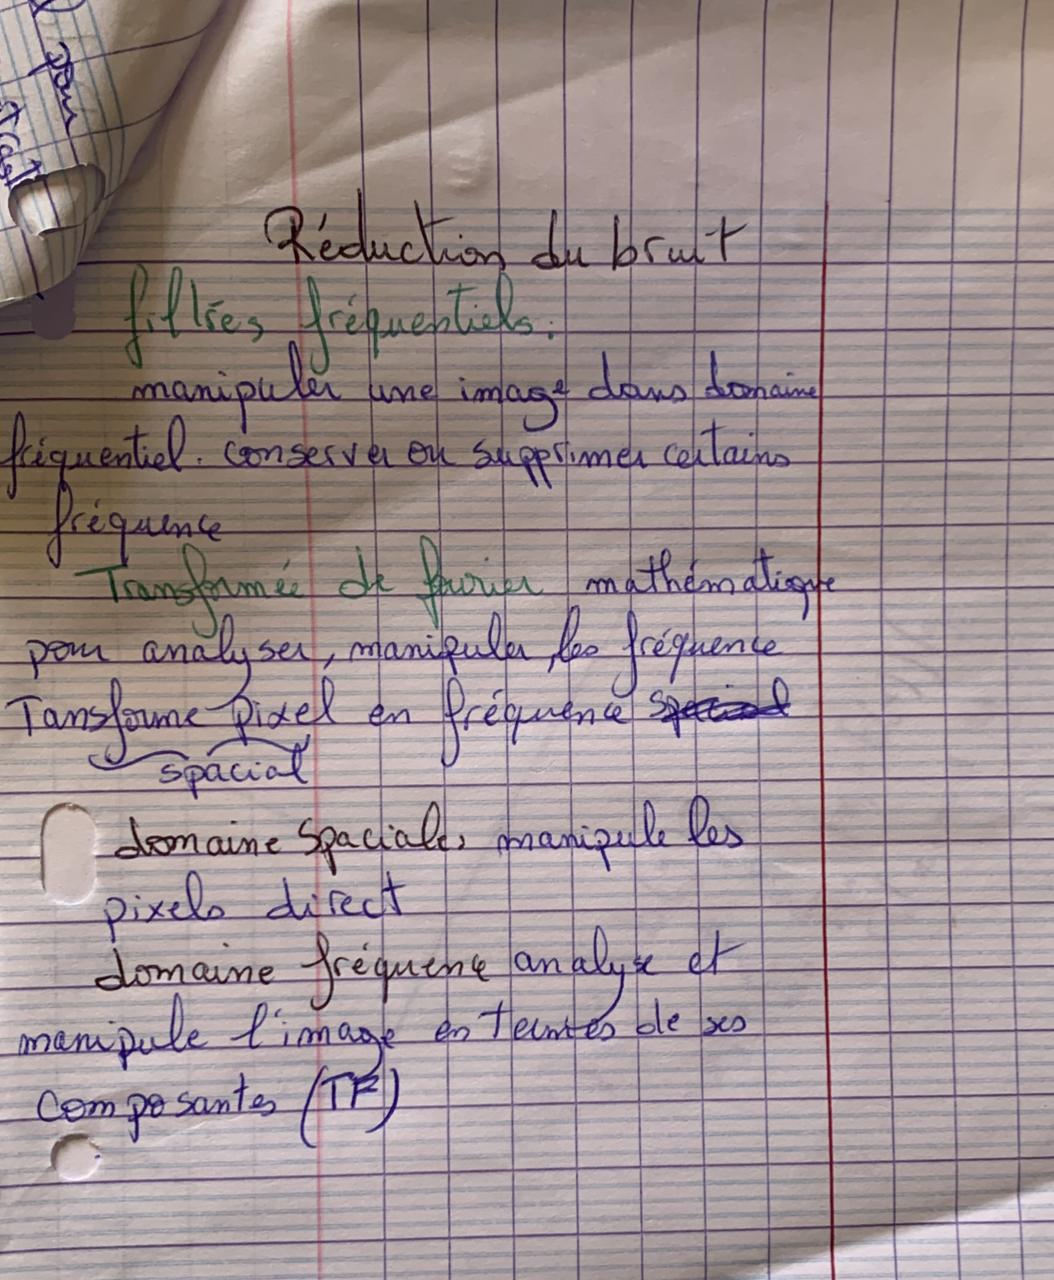 pour
Réduction du bruit
filtres fréquentiels.
manipuler une image dans domaine
fréquentiel. conserver ou supprimer certains
fréquence
Transformée de fourier mathématique
pour analyser, manipuler les fréquence
Tansforme pixel en fréquence spacial
spacial
domaine Spaciale, manipule les
pixels direct
domaine fréquence analyse et
manipule l'image en termes de ses
composantes (TF)